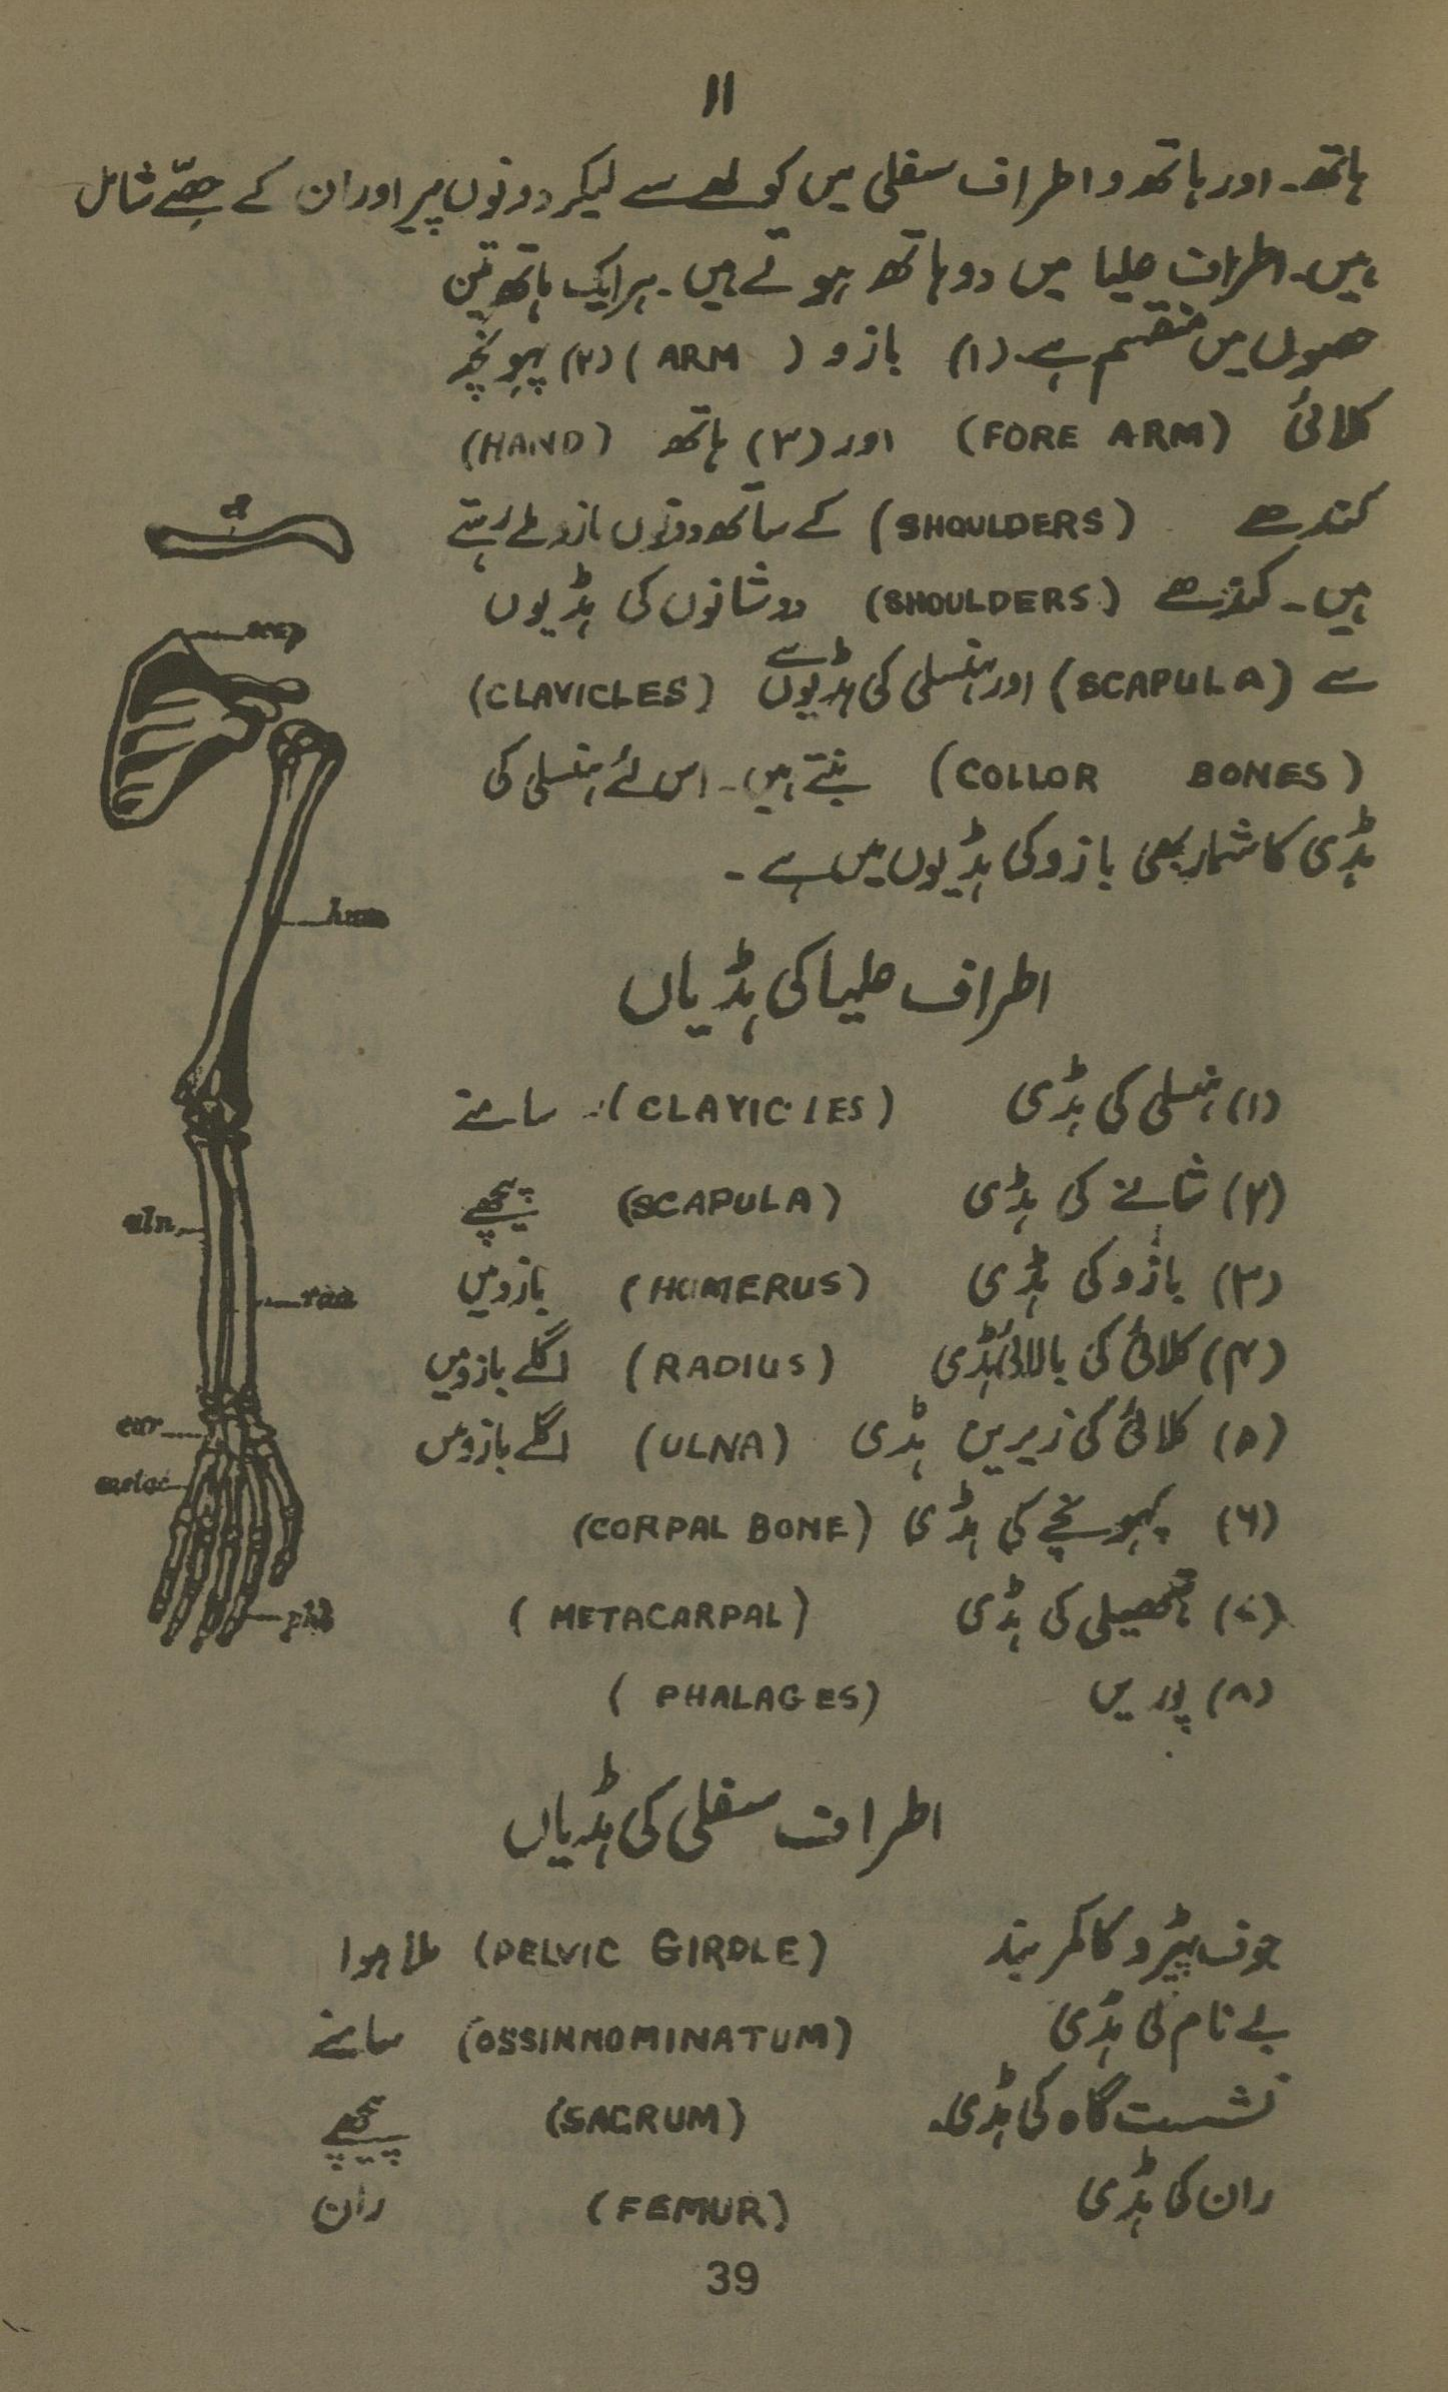 ۱۱
ہاتھ۔ اور ہاتھ و اطراف سفلی میں کولھے سے لیکر دونوں پیر اور ان کے حصّے شامل
ہیں۔ اطراف علیا میں دو ہاتھ ہوتے ہیں۔ ہر ایک ہاتھ تین
حصوں میں منقسم ہے۔ (۱) بازو (ARM) (۲) پہونچہ
کلائی (FORE ARM) اور (۳) ہاتھ (HAND)
کندھے (SHOULDERS) کے ساتھ دونوں بازو ملے رہتے
ہیں۔ کندھے (SHOULDERS) دو شانوں کی ہڈیوں
سے (SCAPULA) اور ہنسلی کی ہڈیوں سے (CLAVICLES)
(COLLOR BONES) بنتے ہیں۔ اس لئے ہنسلی کی
ہڈی کا شمار بھی بازو کی ہڈیوں میں ہے۔
اطراف علیا کی ہڈیاں
(۱) ہنسلی کی ہڈی (CLAVICLES) سامنے
(۲) شانے کی ہڈی (SCAPULA) پیچھے
(۳) بازو کی ہڈی (HUMERUS) بازو میں
(۴) کلائی کی بالائی ہڈی (RADIUS) اگلے بازو میں
(۵) کلائی کی زیریں ہڈی (ULNA) اگلے بازو میں
(۶) پہونچے کی ہڈی (CORPAL BONE)
(۷) ہتھیلی کی ہڈی (METACARPAL)
(۸) پوریں (PHALAGES)
scap
hum
uln
rad
car
metac
اطراف سفلی کی ہڈیاں
جوف پیڑو کا کمر بند (PELVIC GIRDLE) ملا ہوا
بے نام کی ہڈی (OSSINNOMINATUM) سامنے
نشست گاہ کی ہڈی (SACRUM) پیچھے
ران کی ہڈی (FEMUR) ران
39